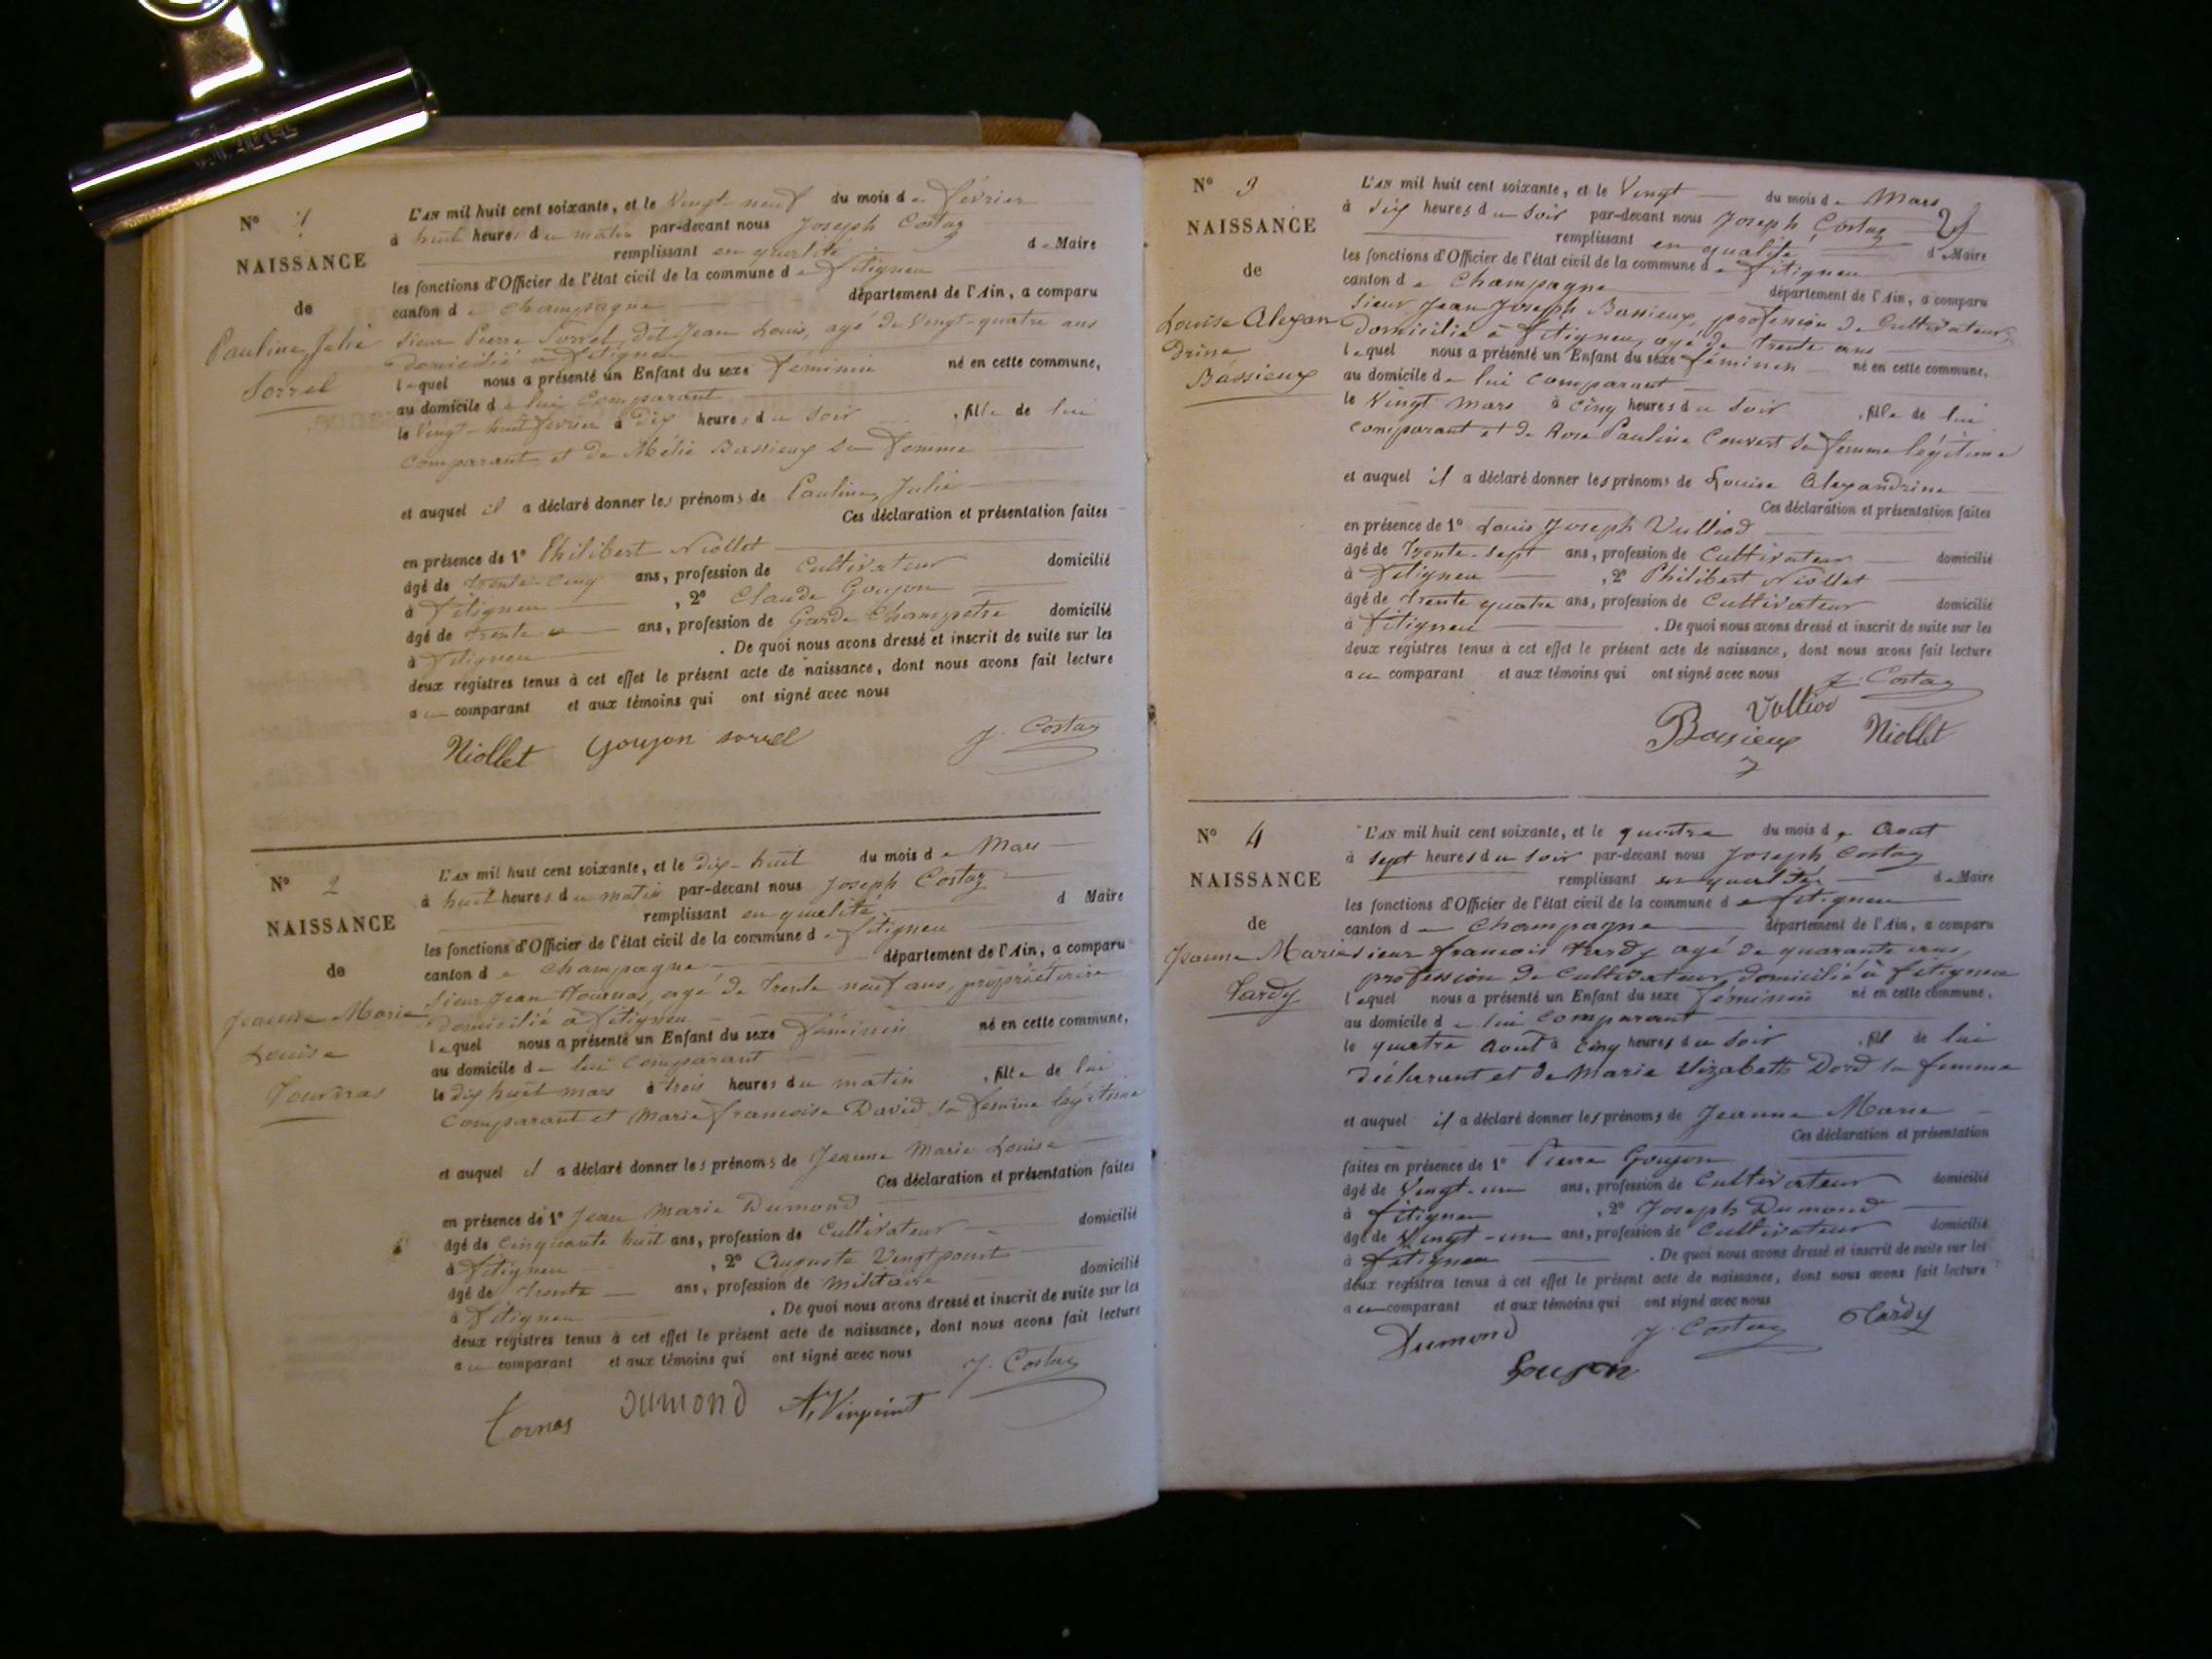 N° 1
NAISSANCE
de
Pauline Julie
Sorrel
L'AN mil huit cent soixante, et le Vingt-neuf du mois de février
à huit heures du matin par-devant nous Joseph Costaz
remplissant en qualité de Maire
les fonctions d'Officier de l'état civil de la commune de Fitignieu
canton de Champagne département de l'Ain, a comparu
Sieur Pierre Sorrel, dit Jean Louis, agé de Vingt-quatre ans
Domicilié à Fitignieu
lequel nous a présenté un Enfant du sexe féminin né en cette commune,
au domicile de lui Comparant
le Vingt-huit février à Dix heures du Soir, fille de lui
Comparant et de Mélie Bassieux sa femme
et auquel il a déclaré donner les prénoms de Pauline, Julie
Ces déclaration et présentation faites
en présence de 1° Philibert Niollet
âgé de trente-cinq ans, profession de Cultivateur domicilié
à Fitignieu, 2° Claude Goujon
âgé de trente ans, profession de Garde Champetre domicilié
à Fitignieu. De quoi nous avons dressé et inscrit de suite sur les
deux registres tenus à cet effet le présent acte de naissance, dont nous avons fait lecture
au comparant et aux témoins qui ont signé avec nous
Niollet Goujon sorrel J. Costaz
N° 2
NAISSANCE
de
Jeanne Marie
Louise
Tournas
L'AN mil huit cent soixante, et le dix-huit du mois de Mars
à huit heures du matin par-devant nous Joseph Costaz
remplissant en qualité d Maire
les fonctions d'Officier de l'état civil de la commune de Fitignieu
canton de Champagne département de l'Ain, a comparu
Sieur Jean Tournas, agé de trente neuf ans, propriétaire
Domicilié à Fitignieu
lequel nous a présenté un Enfant du sexe féminin né en cette commune,
au domicile de lui Comparant
le dix huit mars à trois heures du matin, fille de lui
Comparant et Marie francoise David sa femme légitime
et auquel il a déclaré donner les prénoms de Jeanne Marie Louise
Ces déclaration et présentation faites
en présence de 1° Jean Marie Dumond
âgé de Cinquante huit ans, profession de Cultivateur domicilié
à Fitignieu, 2° Auguste Vingtpoint
âgé de trente ans, profession de Militaire domicilié
à Fitignieu. De quoi nous avons dressé et inscrit de suite sur les
deux registres tenus à cet effet le présent acte de naissance, dont nous avons fait lecture
au comparant et aux témoins qui ont signé avec nous J. Costaz
Tornas Dumond A. Vinpoint
N° 3
NAISSANCE
de
Louise Alexan
Drine
Bassieux
L'AN mil huit cent soixante, et le Vingt du mois de Mars
à six heures du Soir par-devant nous Joseph Costaz
remplissant en qualité de Maire
les fonctions d'Officier de l'état civil de la commune de Fitignieu
canton de Champagne département de l'Ain, a comparu
Sieur Jean Joseph Bassieux, profession de Cultivateur,
Domicilié à Fitignieu, agé de trente ans
lequel nous a présenté un Enfant du sexe féminin né en cette commune,
au domicile de lui comparant
le Vingt mars à cinq heures du Soir, fille de lui
comparant et de Rose Pauline Convert sa femme légitime
et auquel il a déclaré donner les prénoms de Louise Alexandrine
Ces déclaration et présentation faites
en présence de 1° Louis Joseph Vulliod
âgé de Trente-sept ans, profession de Cultivateur domicilié
à Fitignieu, 2° Philibert Niollet
âgé de trente quatre ans, profession de Cultivateur domicilié
à Fitignieu. De quoi nous avons dressé et inscrit de suite sur les
deux registres tenus à cet effet le présent acte de naissance, dont nous avons fait lecture
au comparant et aux témoins qui ont signé avec nous J. Costaz
Vulliod
Bassieux Niollet
N° 4
NAISSANCE
de
Jeanne Marie
Tardy
L'AN mil huit cent soixante, et le quatre du mois de Aout
à sept heures du Soir par-devant nous Joseph Costaz
remplissant en qualité de Maire
les fonctions d'Officier de l'état civil de la commune de Fitignieu
canton de Champagne département de l'Ain, a comparu
sieur francois tardy agé de quarante ans,
profession de Cultivateur, domicilié à fitignieu
lequel nous a présenté un Enfant du sexe féminin né en cette commune,
au domicile de lui Comparant
le quatre Aout à Cinq heures du Soir, fil de lui
déclarant et de Marie Elizabeth Dord sa femme
et auquel il a déclaré donner les prénoms de Jeanne Marie
Ces déclaration et présentation
faites en présence de 1° Pierre Goujon
âgé de Vingt-un ans, profession de Cultivateur domicilié
à fitignieu, 2° Joseph Dumond
âgé de Vingt-un ans, profession de Cultivateur domicilié
à fitignieu. De quoi nous avons dressé et inscrit de suite sur les
deux registres tenus à cet effet le présent acte de naissance, dont nous avons fait lecture
au comparant et aux témoins qui ont signé avec nous
Dumond J. Costaz Tardy
Goujon